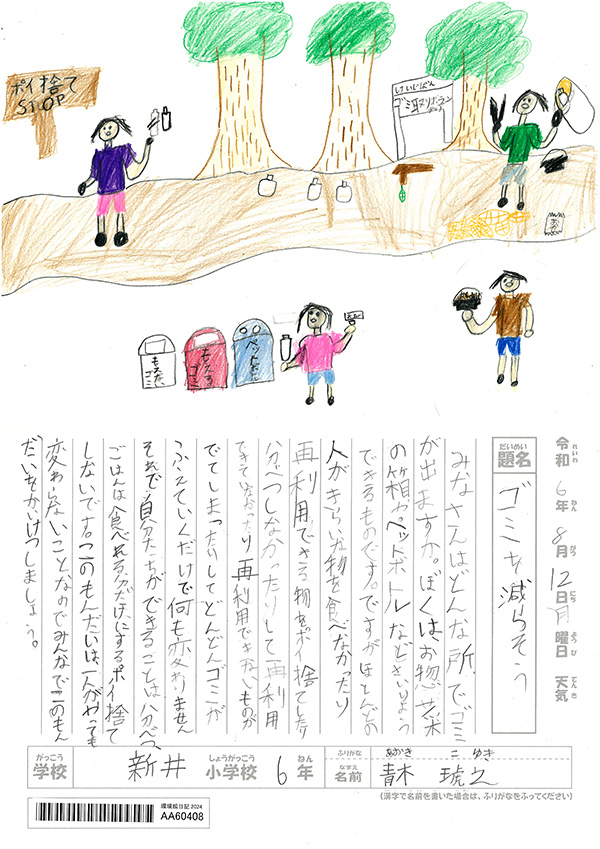 ポイ捨て
STOP
けいじばん
ゴミ取りボラン
もえない
ゴミ
もえる
ゴミ
ペットボトル
令和 6年 8月 12日 月曜日 天気
れいわ ねん がつ にち ようび てんき
だいめい
題名
ゴミを減らそう
みなさんはどんな所でゴミ
が出ますか。ぼくはお惣菜
の箱やペットボトルなどさいりよう
できるものです。ですがほとんどの
人がきらいな物を食べなかったり
再利用できる物をポイ捨てしたり
分べつしなかったりして再利用
できていなかったり再利用できないものが
でてしまったりしてどんどんゴミが
ふえていくだけで何も変わりません
それで自分たちができることは分べつ、
ごはんは食べれる分だけにするポイ捨て
しないです。このもんだいは、一人がやっても
変わらないことなのでみんなでこのもん
だいをかいけつしましょう。
がっこう しょうがっこう ねん ふりがな あおき こゆき
学校 新井 小学校 6年 なまえ 名前 青木 琥之
(漢字で名前を書いた場合は、ふりがなをふってください)
環境絵日記2024
AA60408